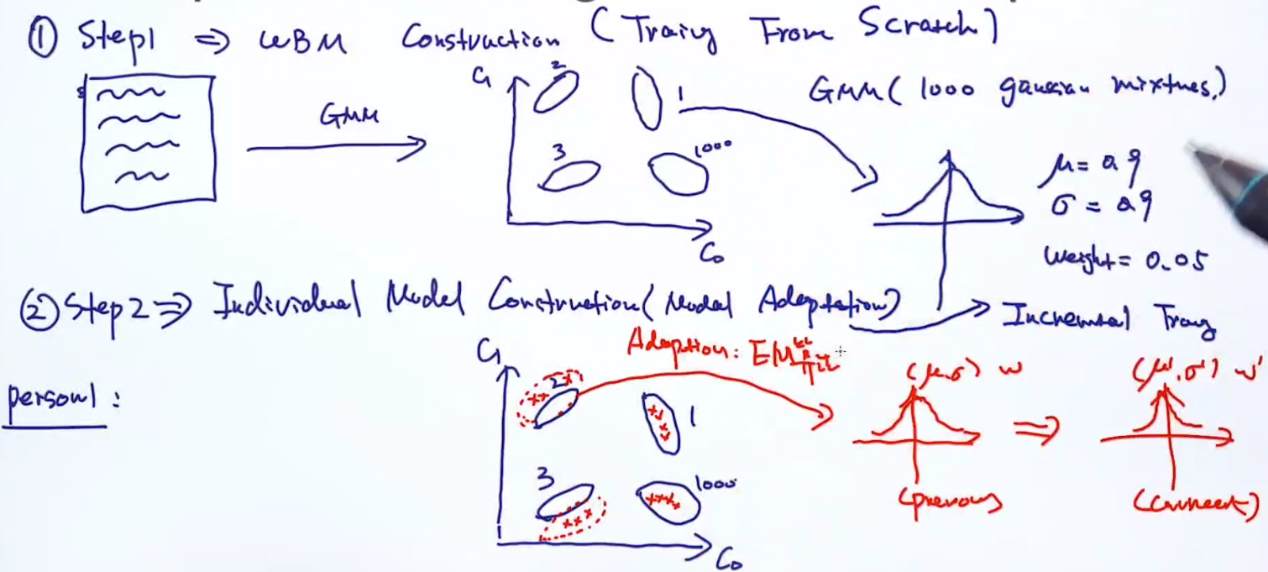 ① Step1 ⇒ UBM Construction (Traing From Scratch)
C1
2
1
GMM (1000 gaussian mixtures)
GMM
3
1000
μ = 0.9
σ = 0.9
C0
weight = 0.05
② Step2 ⇒ Individual Model Construction (Model Adaptation)
Incremental Traing
C1
Adaption: EM
(μ, σ) w
(μ', σ') w'
person1 :
2
1
3
1000
(prevous)
(current)
C0